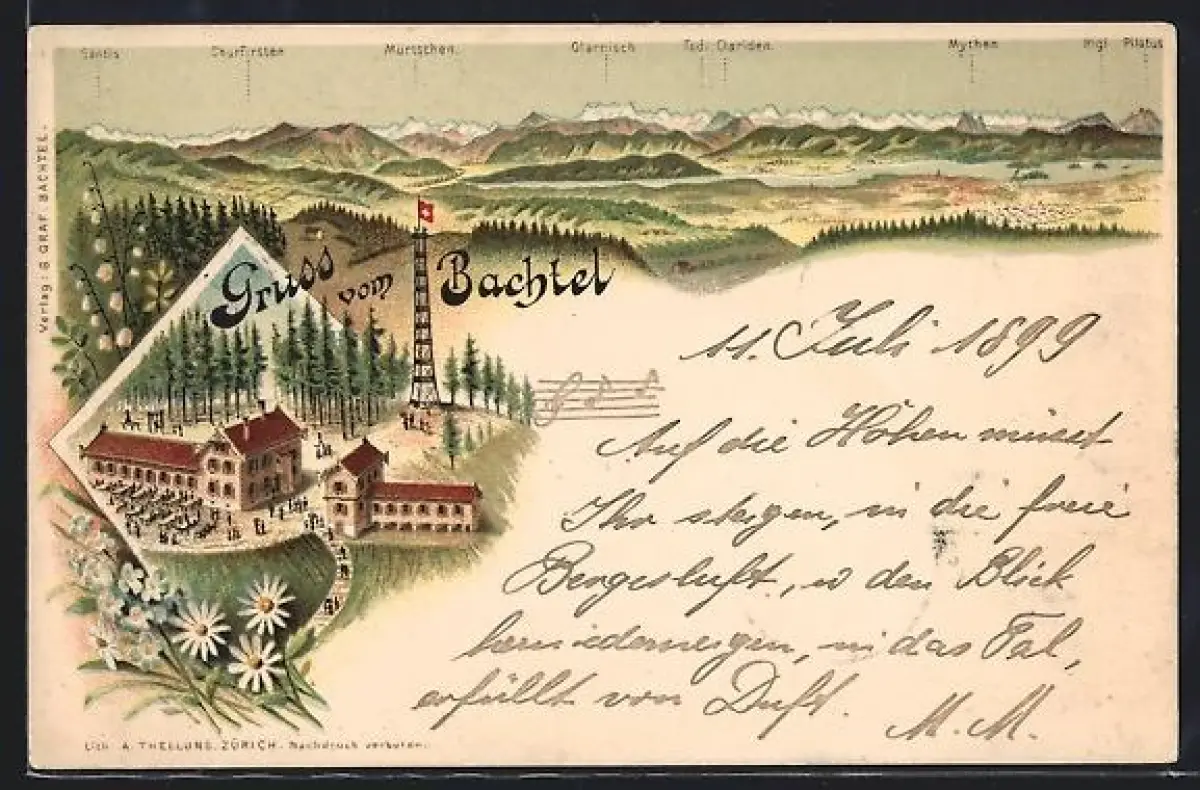 Säntis Churfirsten Mürtschen. Glärnisch Tödi Clariden. Mythen Rigi Pilatus
Verlag: G GRAF. BACHTEL.
Gruss vom Bachtel
11. Juli 1899
Auf die Höhen müsst
Ihr steigen, in die freie
Bergesluft, wo den Blick
herniederneigen, in das Tal,
erfüllt von Duft.
M. M.
Lith. A. THELLUNG. ZÜRICH. Nachdruck verboten.